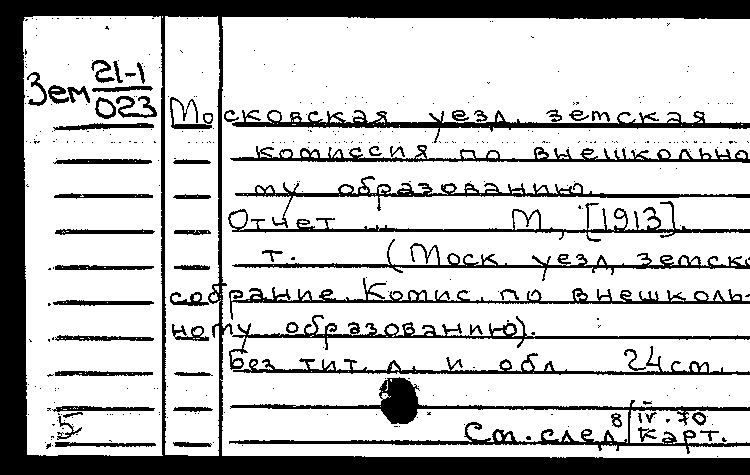 Зем 21-1
023
Московская уезд. земская
комиссия по внешкольно
му образованию.
Отчет ... М., [1913].
т. (Моск. уезд. земско
собрание. Комис. по внешколь-
ному образованию).
Без тит. л. и обл. 24 см.
5
8/IV.70
См. след. карт.